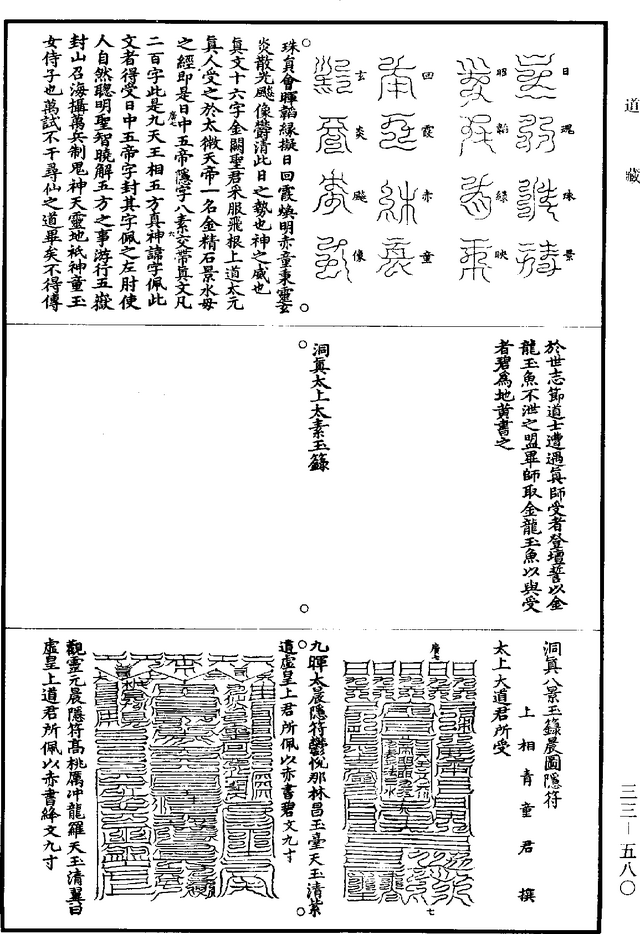 道藏
日魂珠景
昭韜綠映
回霞赤童
玄炎飈像
珠貟會暉韜緑擬日回霞煥明赤童秉靈玄
炎散光飈像欝清此日之勢也神之威也
真文十六字金闕聖君采服飛根上道太元
真人受之於太微天帝一名金精石景水母
之經即是日中五帝隱字八素交帶真文凡
二百字此是九天王相五方真神諱字佩此
文者得受日中五帝字封其字佩之左肘使
人自然聰明聖智曉解五方之事游行五嶽
封山召海攝萬兵制鬼神天靈地祇神童玉
女侍子也萬試不干尋仙之道畢矣不得傳
於世志節道士遭遇真師受者登壇誓以金
龍玉魚不泄之盟畢師取金龍玉魚以與受
者碧爲地黄書之
洞真太上太素玉籙
洞真八景玉籙晨圖隱符
上相青童君撰
太上大道君所受
九暉太晨隱符欝悅那林昌玉臺天玉清紫
道虛皇上君所佩以赤書碧文九寸
觀靈元晨隱符高桃厲沖龍羅天玉清翼日
虛皇上道君所佩以赤書絳文九寸
三三—五八〇